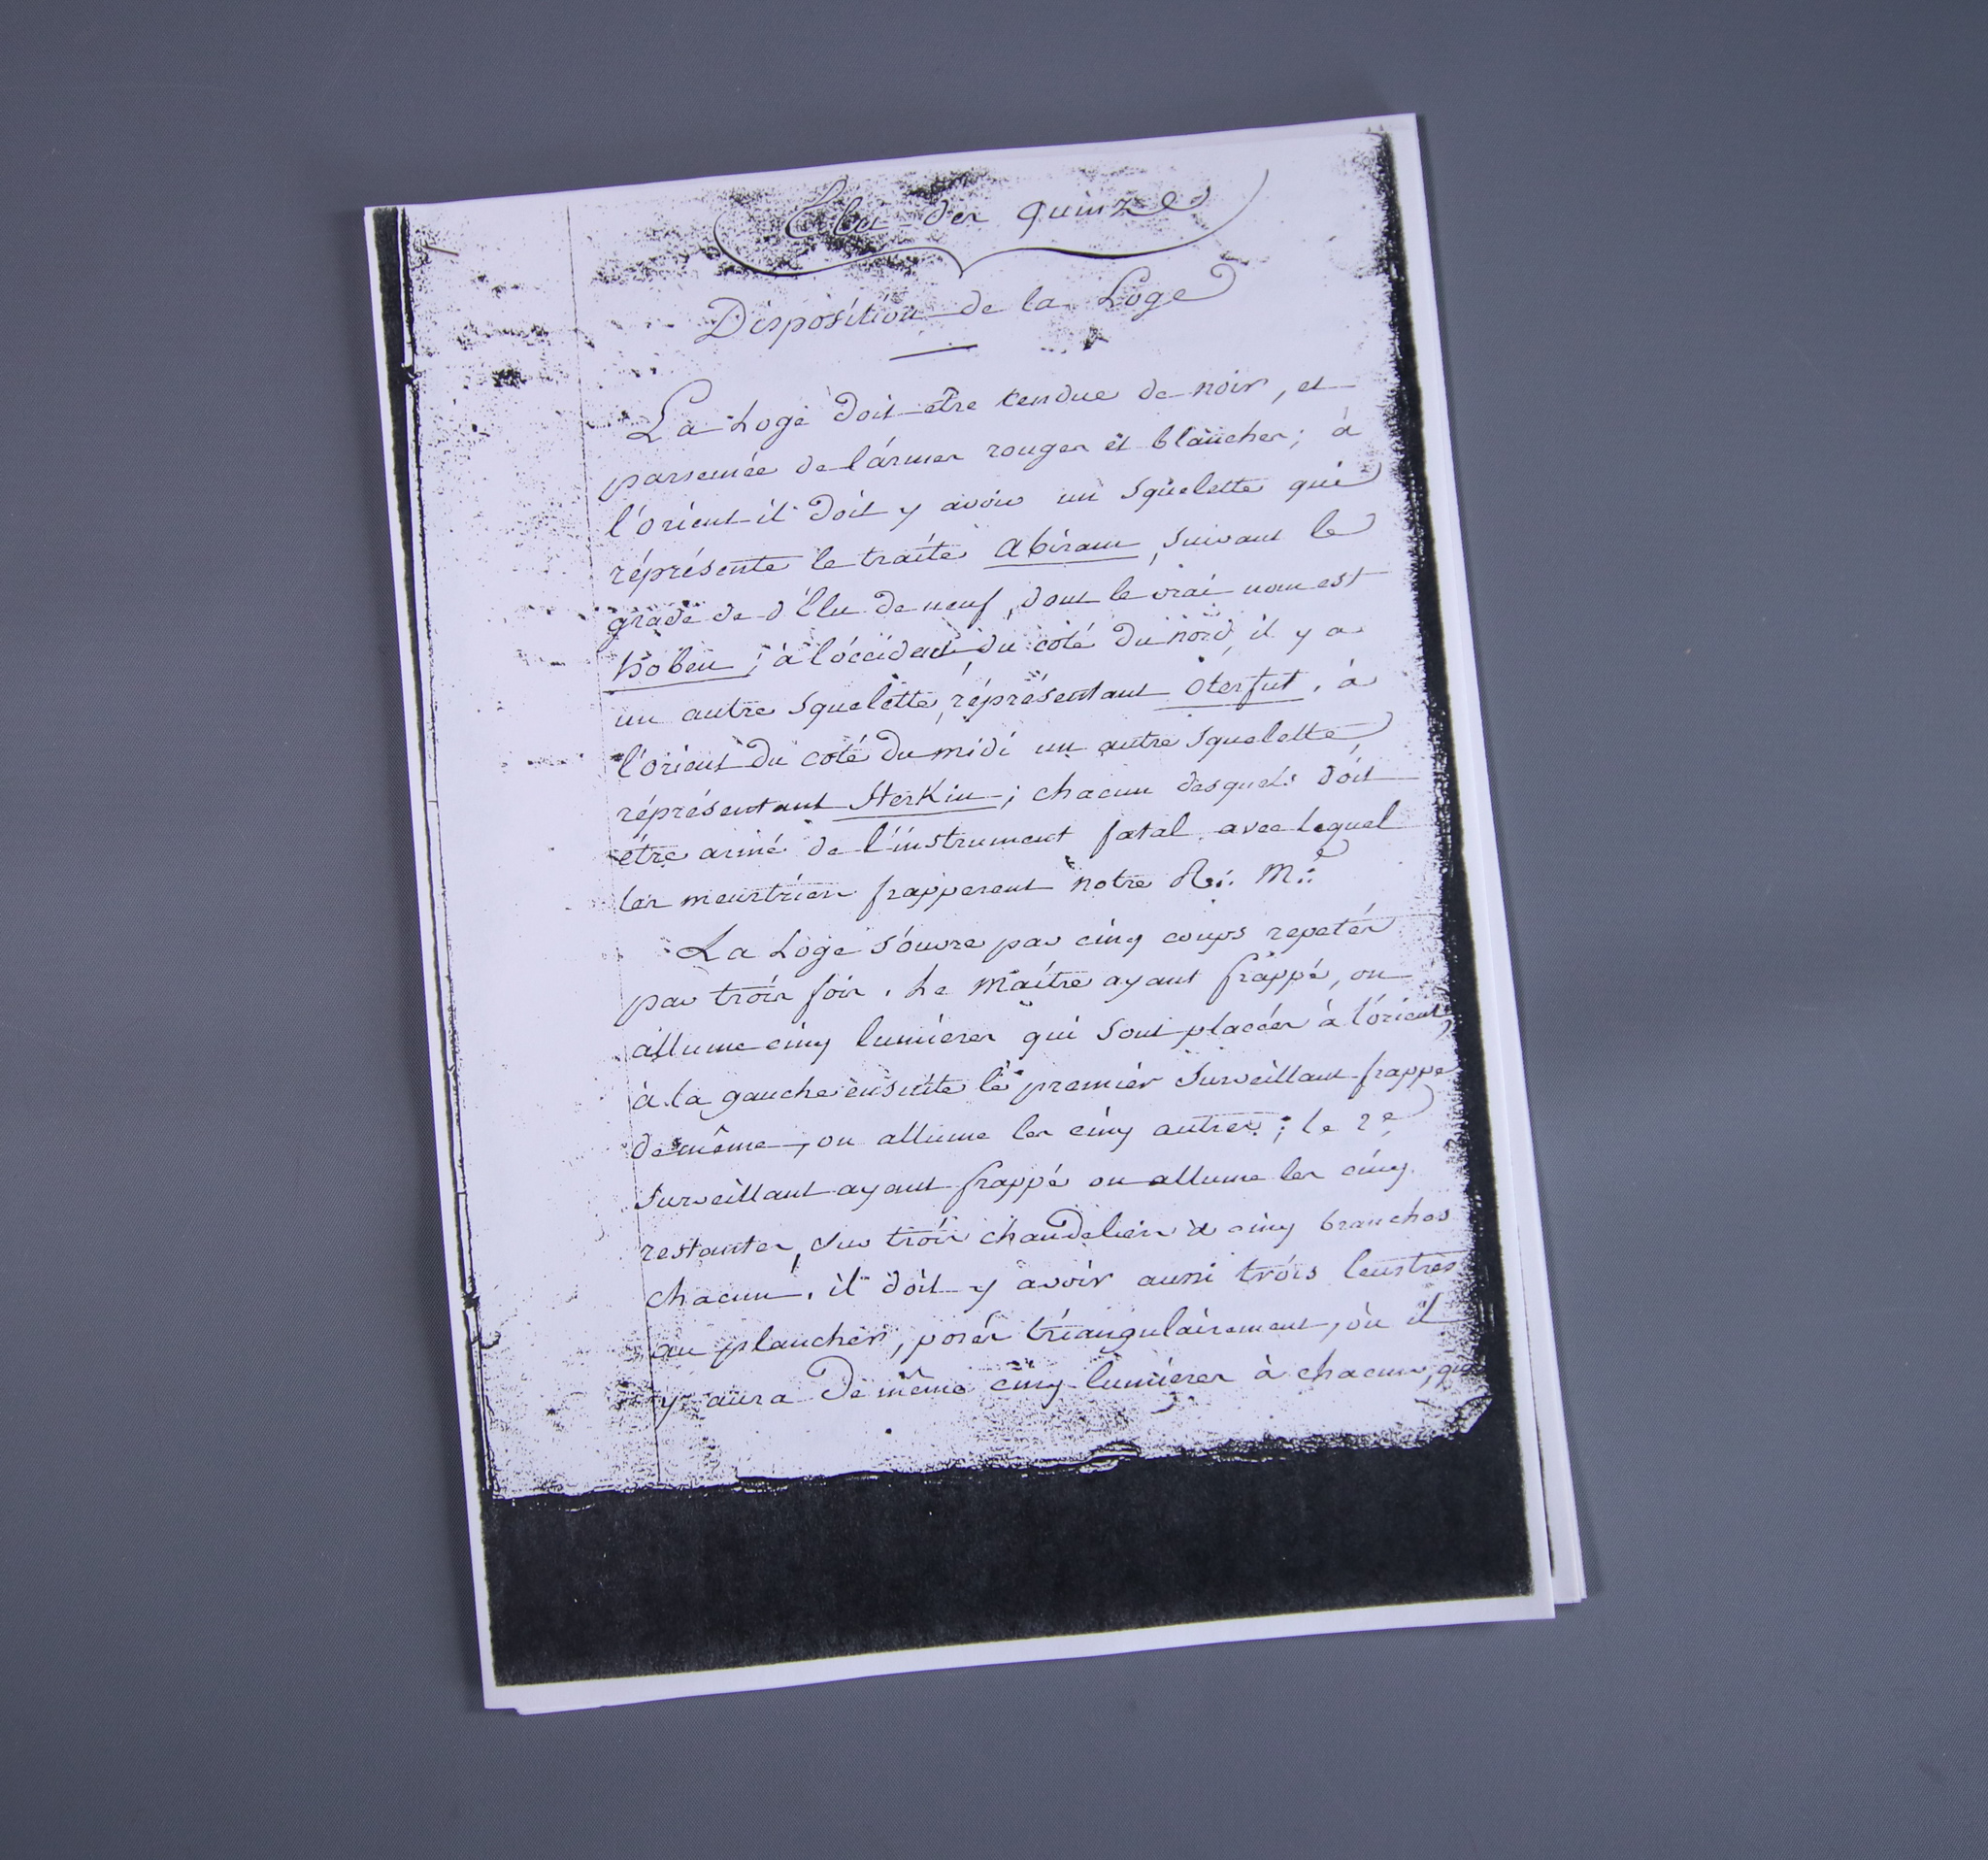 Elu des quinze
Disposition de la Loge
La Loge doit être tendue de noir, et
parsemée de lármes rouges et blanches ; à
l'orient il doit y avoir un squelette qui
réprésente le traite Abiram, suivant le
grade de d'Elu de neuf, dont le vrai nom est
hoben ; à l'occident, du coté du nord, il y a
un autre squelette, réprésentant Oterfut. à
l'orient du coté du midi un autre squelette
réprésentant Sterkin ; chacun desquels doit
être armé de l'instrument fatal avec lequel
les meurtriers frapperent notre R∴ M∴
La Loge s'ouvre par cinq coups repetés
par trois fois. Le Maître ayant frappé, on
allume cinq lumieres qui sont placées à l'orient,
à la gauche ensuite le premier Surveillant frappe
de même, on allume les cinq autres ; le 2e
Surveillant ayant frappé on allume les cinq
restantes, sur trois chandeliers à cinq branches
chacun. il doit y avoir aussi trois leustres
au plancher, posés triangulairement, où il
y aura de même cinq lumieres à chacun, qui